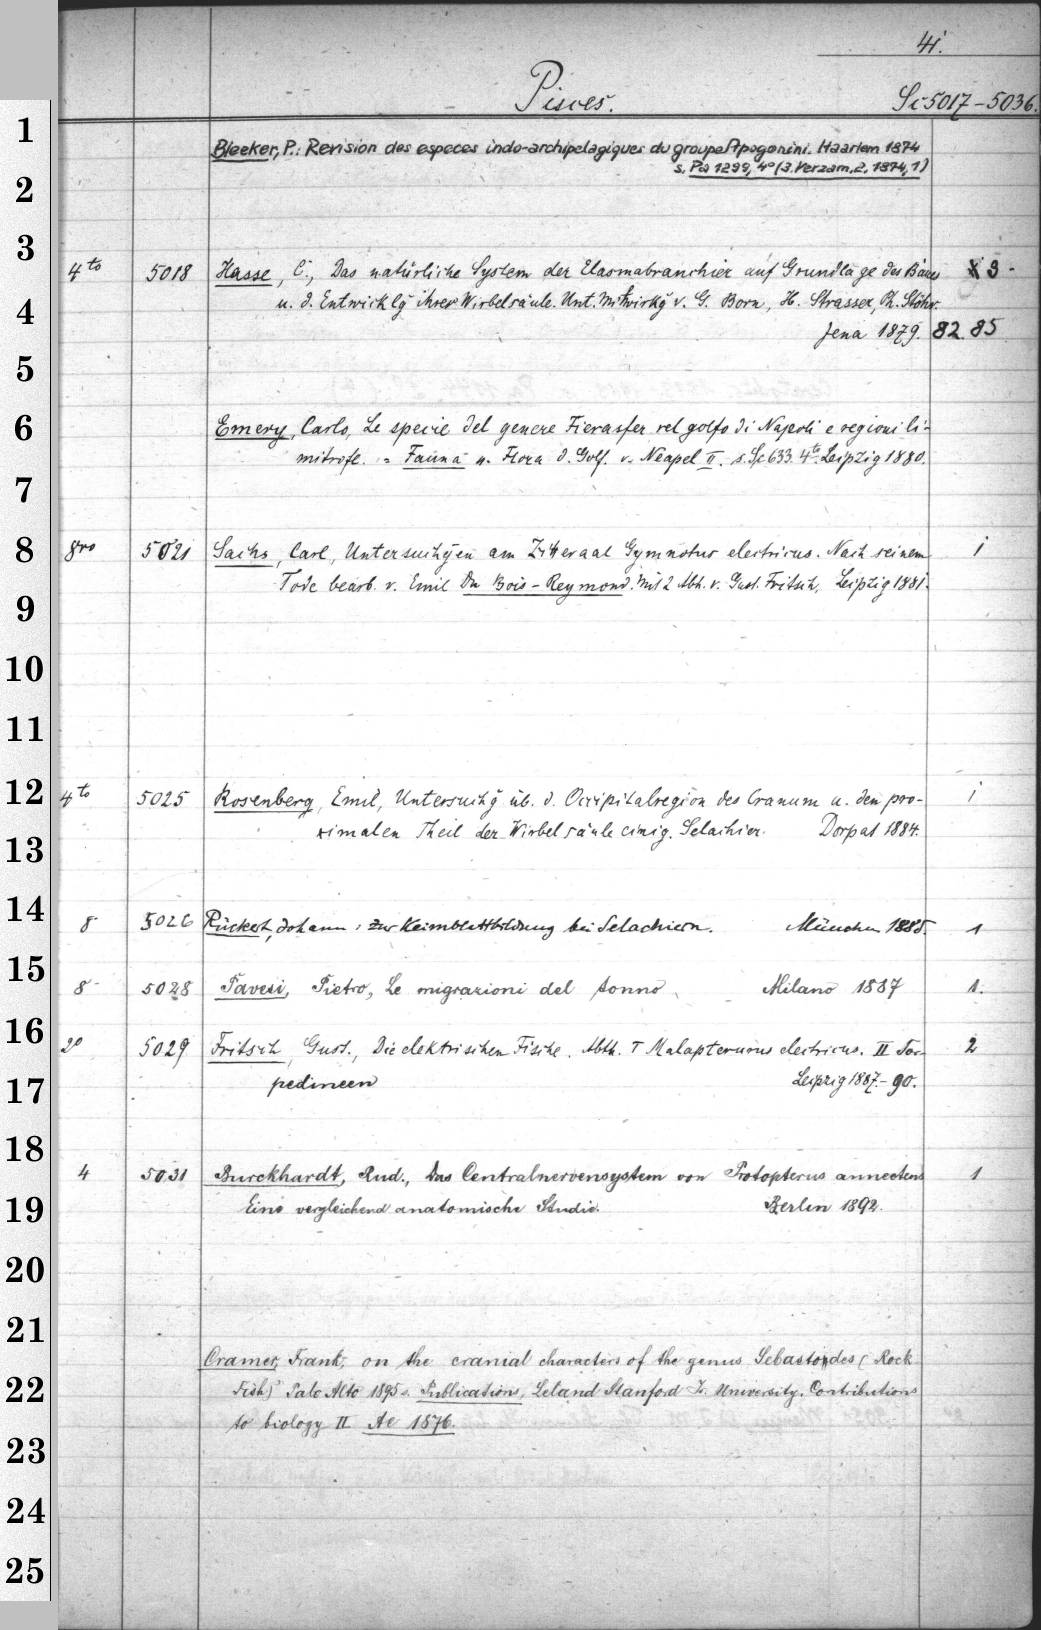 41.
Pisces.
Sc 5017-5036.
1
Bleeker, P.: Revision des especes indo-archipelagiques du groupe Apogonini. Haarlem 1874
2
s. Pa 1299, 4° (3. Verzam. 2, 1874, 1)
3
4to 5018 Hasse, C., Das natürliche System der Elasmobranchier auf Grundlage des Baues 3
4
u. d. Entwicklg ihrer Wirbelsäule. Unt. Mitwirkg v. G. Born, H. Strasser, Ph. Stöhr.
Jena 1879. 82. 85
5
6
Emery, Carlo, Le specie del genere Fierasfer nel golfo di Napoli e regioni li-
mitrofe. = Fauna u. Flora d. Golf. v. Neapel II. s. Sc 633. 4to Leipzig 1880.
7
8
8vo 5021 Sachs, Carl, Untersuchgen am Zitteraal Gymnotus electricus. Nach seinem 1
Tode bearb. v. Emil Du Bois-Reymond. Mit 2 Abh. v. Gust. Fritsch, Leipzig 1881.
9
10
11
12
4to 5025 Rosenberg, Emil, Untersuchg üb. d. Occipitalregion des Cranum u. den pro- 1
ximalen Theil der Wirbelsäule einig. Selachier. Dorpat 1884.
13
14
8 5026 Rückert, Johann: zur Keimblattbildung bei Selachiern. München 1885. 1
15
8 5028 Pavesi, Pietro, Le migrazioni del tonno. Milano 1887 1.
16
2° 5029 Fritsch, Gust., Die elektrischen Fische. Abth. I Malapterurus electricus. II Tor- 2
17
pedineen Leipzig 1887.-90.
18
4 5031 Burckhardt, Rud., Das Centralnervensystem von Protopterus annectens 1
19
Eine vergleichend anatomische Studie. Berlin 1892.
20
21
Cramer, Frank, on the cranial characters of the genus Sebastodes (Rock
22
Fish) Palo Alto 1895 s. Publications, Leland Stanford Jr. University. Contributions
to biology II Ae 1576.
23
24
25